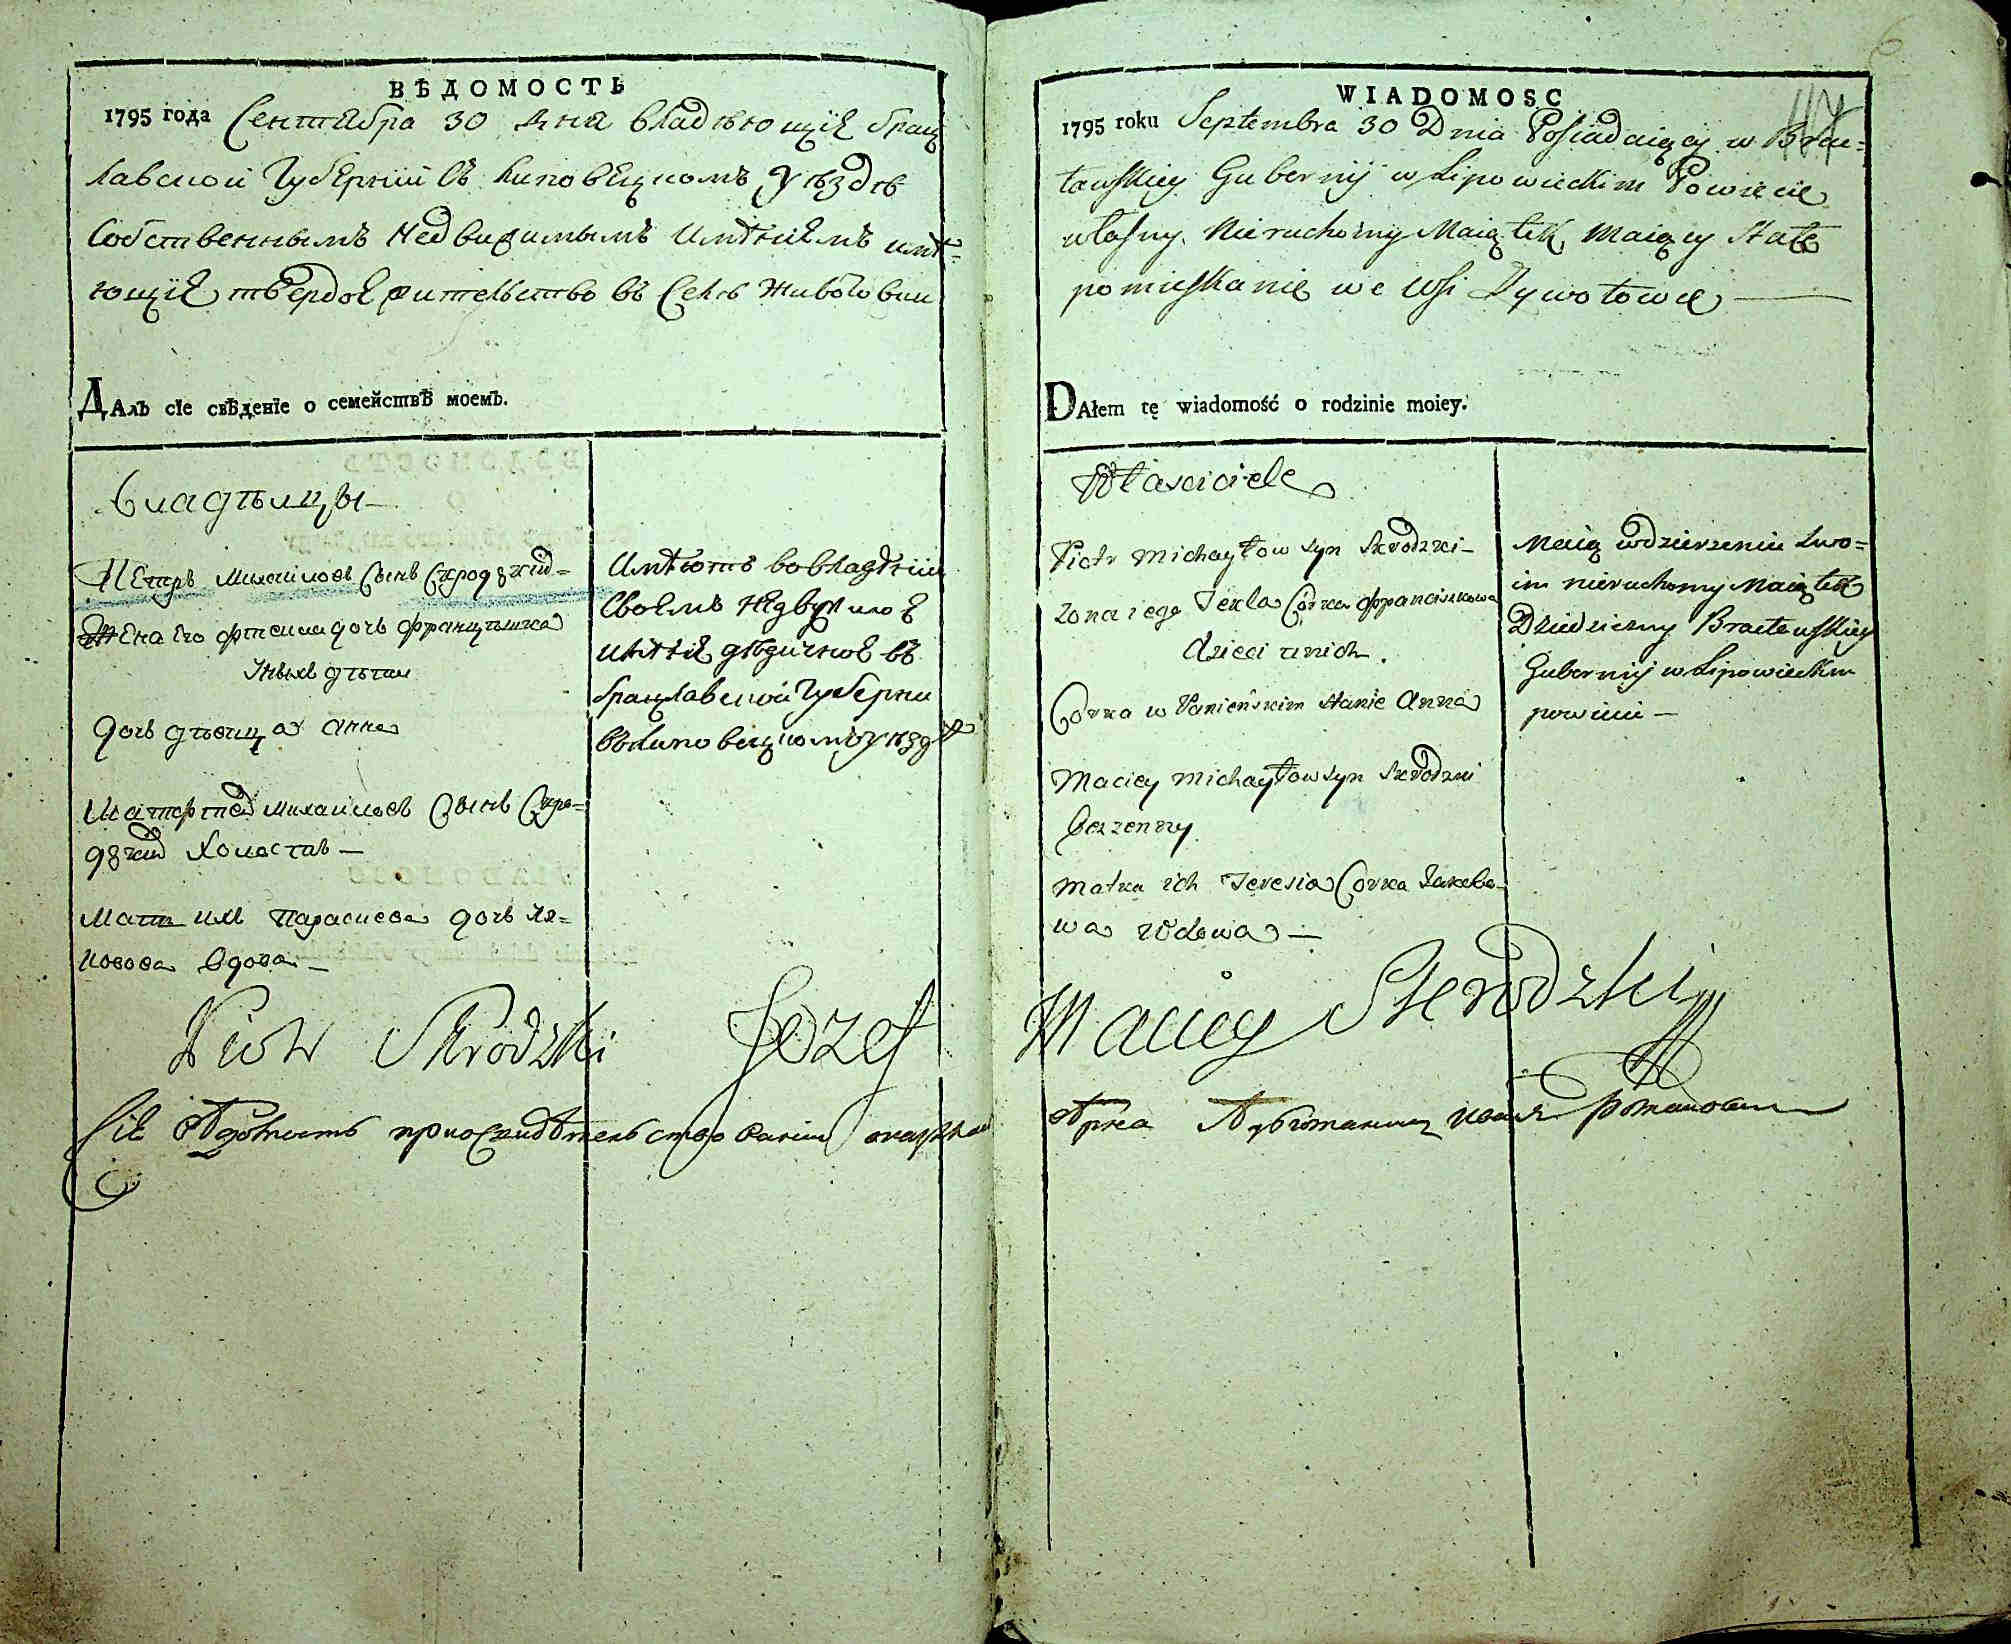 ВѢДОМОСТЬ
1795 года Сентября 30 дня владѣющие Брац
лавской Губернии въ Липовецкомъ уѣздѣ
собственнымъ недвижимымъ имѣниемъ имѣ=
ющие твердое жительство въ селѣ Животовки
ДАлъ сіе свѣденіе о семействѣ моемъ.
Владѣлцы
Петръ Михайловъ сынъ Скродзкий
Жена его дочь Францышка
у нихъ дѣти
дочь дѣвица Анна
Матфей Михайловъ сынъ Скро=
дзкий холостъ
Мать ихъ дочь Яковова вдова
Имѣютъ во владѣнии
своемъ недвижимое
имѣние дѣдичное въ
Брацлавской Губернии
въ Липовецкомъ уѣздѣ
Piotr Skrodzki Jozef
Сие
6
117
WIADOMOSC
1795 roku Septembra 30 Dnia Posiadaiący w Brac=
ławskiey Gubernij w Lipowieckim Powiecie
własny Nieruchomy Maiątek Maiący Stałe
pomieszkanie we Wsi Zywotowie
DAłem tę wiadomość o rodzinie moiey.
Własciciele
Piotr Michayłow syn Skrodzki
zona iego Tekla Corka Franciszkowa
dzieci u nich
Corka w Panieńskim stanie Anna
Maciey Michayłow syn Skrodzki
bezzenny
Matka ich Teresia Corka Jakobo=
wa wdowa
Maią w dzierzeniu swo=
im nieruchomy Maiątek
Dziedziczny Bracławskiey
Gubernij w Lipowieckim
powiecie
Maciey Skrodzki